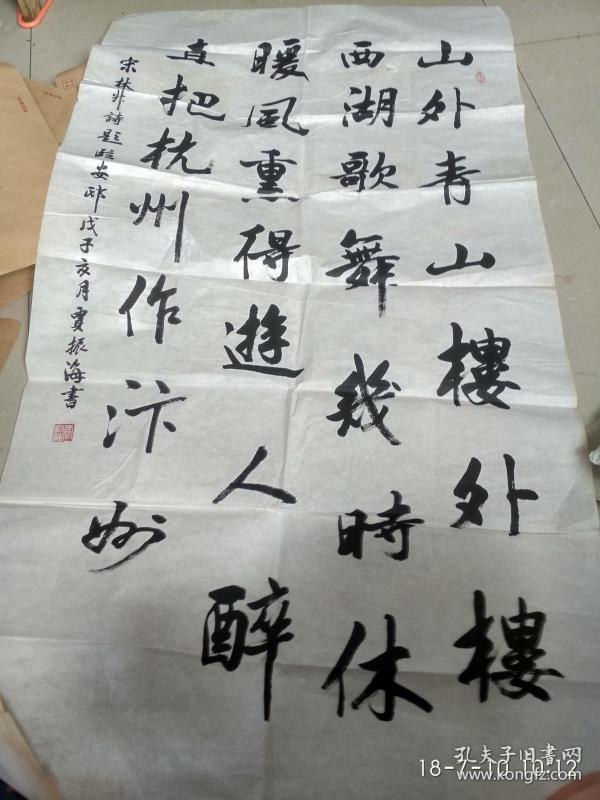 山外青山樓外樓
西湖歌舞幾時休
暖風熏得遊人醉
直把杭州作汴州
宋林升詩題臨安邸戊子亥月賈振海書
18-7-10 10:12
孔夫子旧書网
www.kongfz.com